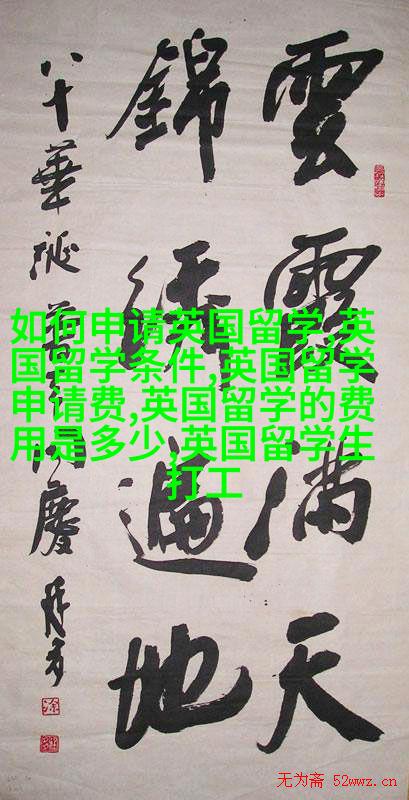 雲霞满天
錦绣遍地
八十華诞
慶
如何申请英国留学,英
国留学条件,英国留学
申请费,英国留学的费
用是多少,英国留学生
打工
无为斋 52wwz.cn